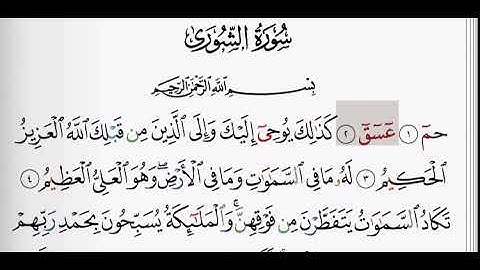 سُورَةُ الشُّورَىٰ
بِسْمِ اللَّهِ الرَّحْمَٰنِ الرَّحِيمِ
حمٓ ١ عٓسٓقٓ ٢ كَذَٰلِكَ يُوحِىٓ إِلَيْكَ وَإِلَى الَّذِينَ مِن قَبْلِكَ اللَّهُ الْعَزِيزُ
الْحَكِيمُ ٣ لَهُۥ مَا فِى السَّمَٰوَٰتِ وَمَا فِى الْأَرْضِ ۖ وَهُوَ الْعَلِىُّ الْعَظِيمُ ٤
تَكَادُ السَّمَٰوَٰتُ يَتَفَطَّرْنَ مِن فَوْقِهِنَّ ۚ وَالْمَلَٰٓئِكَةُ يُسَبِّحُونَ بِحَمْدِ رَبِّهِمْ